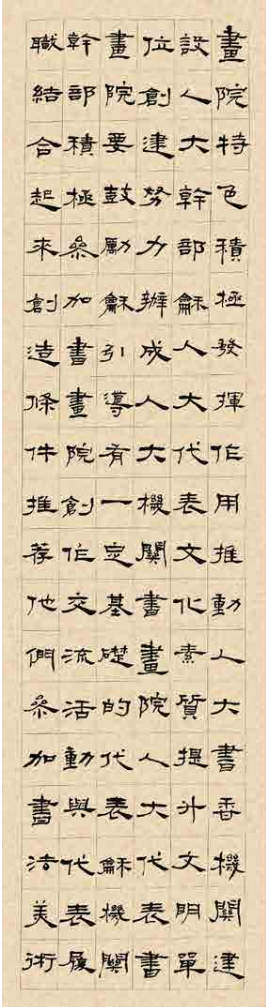 畫院特色積極發揮作用推動人大書香機關建
設人大幹部龢人大代表文化素質提升文明單
位創建努力辦成人大機關書畫院人大代表書
畫院要鼓勵龢引導有一定基礎的代表龢機關
幹部積極參加書畫院創作交流活動與代表履
職結合起來創造條件推荐他們參加書法美術